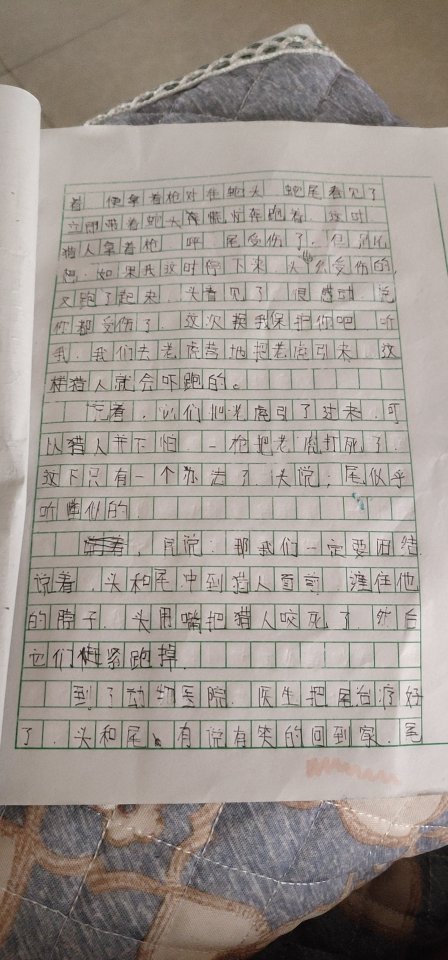 着，便拿着枪对准蛇头，蛇尾看见了
立即带着蛇头在慌忙在跑着，这时
猎人拿着枪，呯，尾受伤了，但
想，如果我这时停下来，头会受伤的，
又跑了起来，头看见了，很感动，说
你都受伤了，这次换我保护你吧，听
我，我们去老虎营地把老虎引来，这
样猎人就会吓跑的。
说着，他们把老虎引了过来，可
以猎人并不怕，一枪把老虎打死了，
这下只有一个办法了，头说；尾似乎
听懂似的，
，尾说：那我们一定要团结，
说着，头和尾冲到猎人面前，缠住他
的脖子，头用嘴把猎人咬死了，然后
它们赶紧跑掉，
到了动物医院，医生把尾治疗好
了，头和尾、有说有笑的回到家，尾